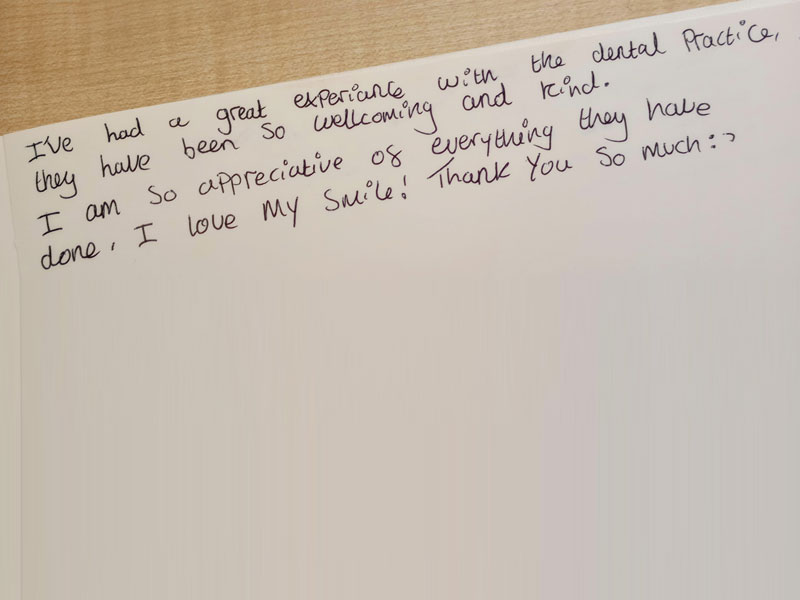 I've had a great experiance with the dental Practice,
they have been so wellcoming and kind.
I am so appreciative of everything they have
done, I love My Smile! Thank You so much :)